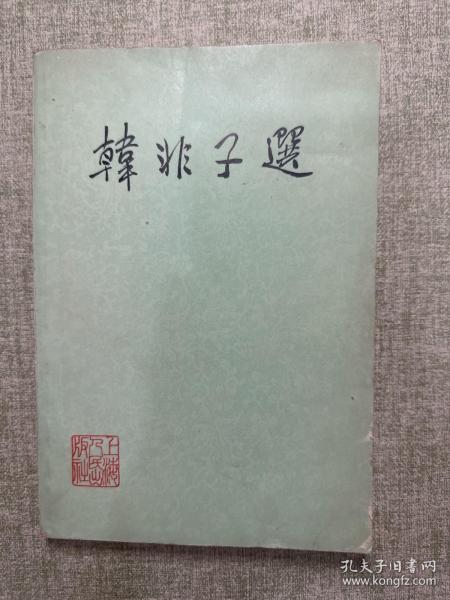 韓非子選
上海
人民出
版社
孔夫子旧书网
www.kongfz.com